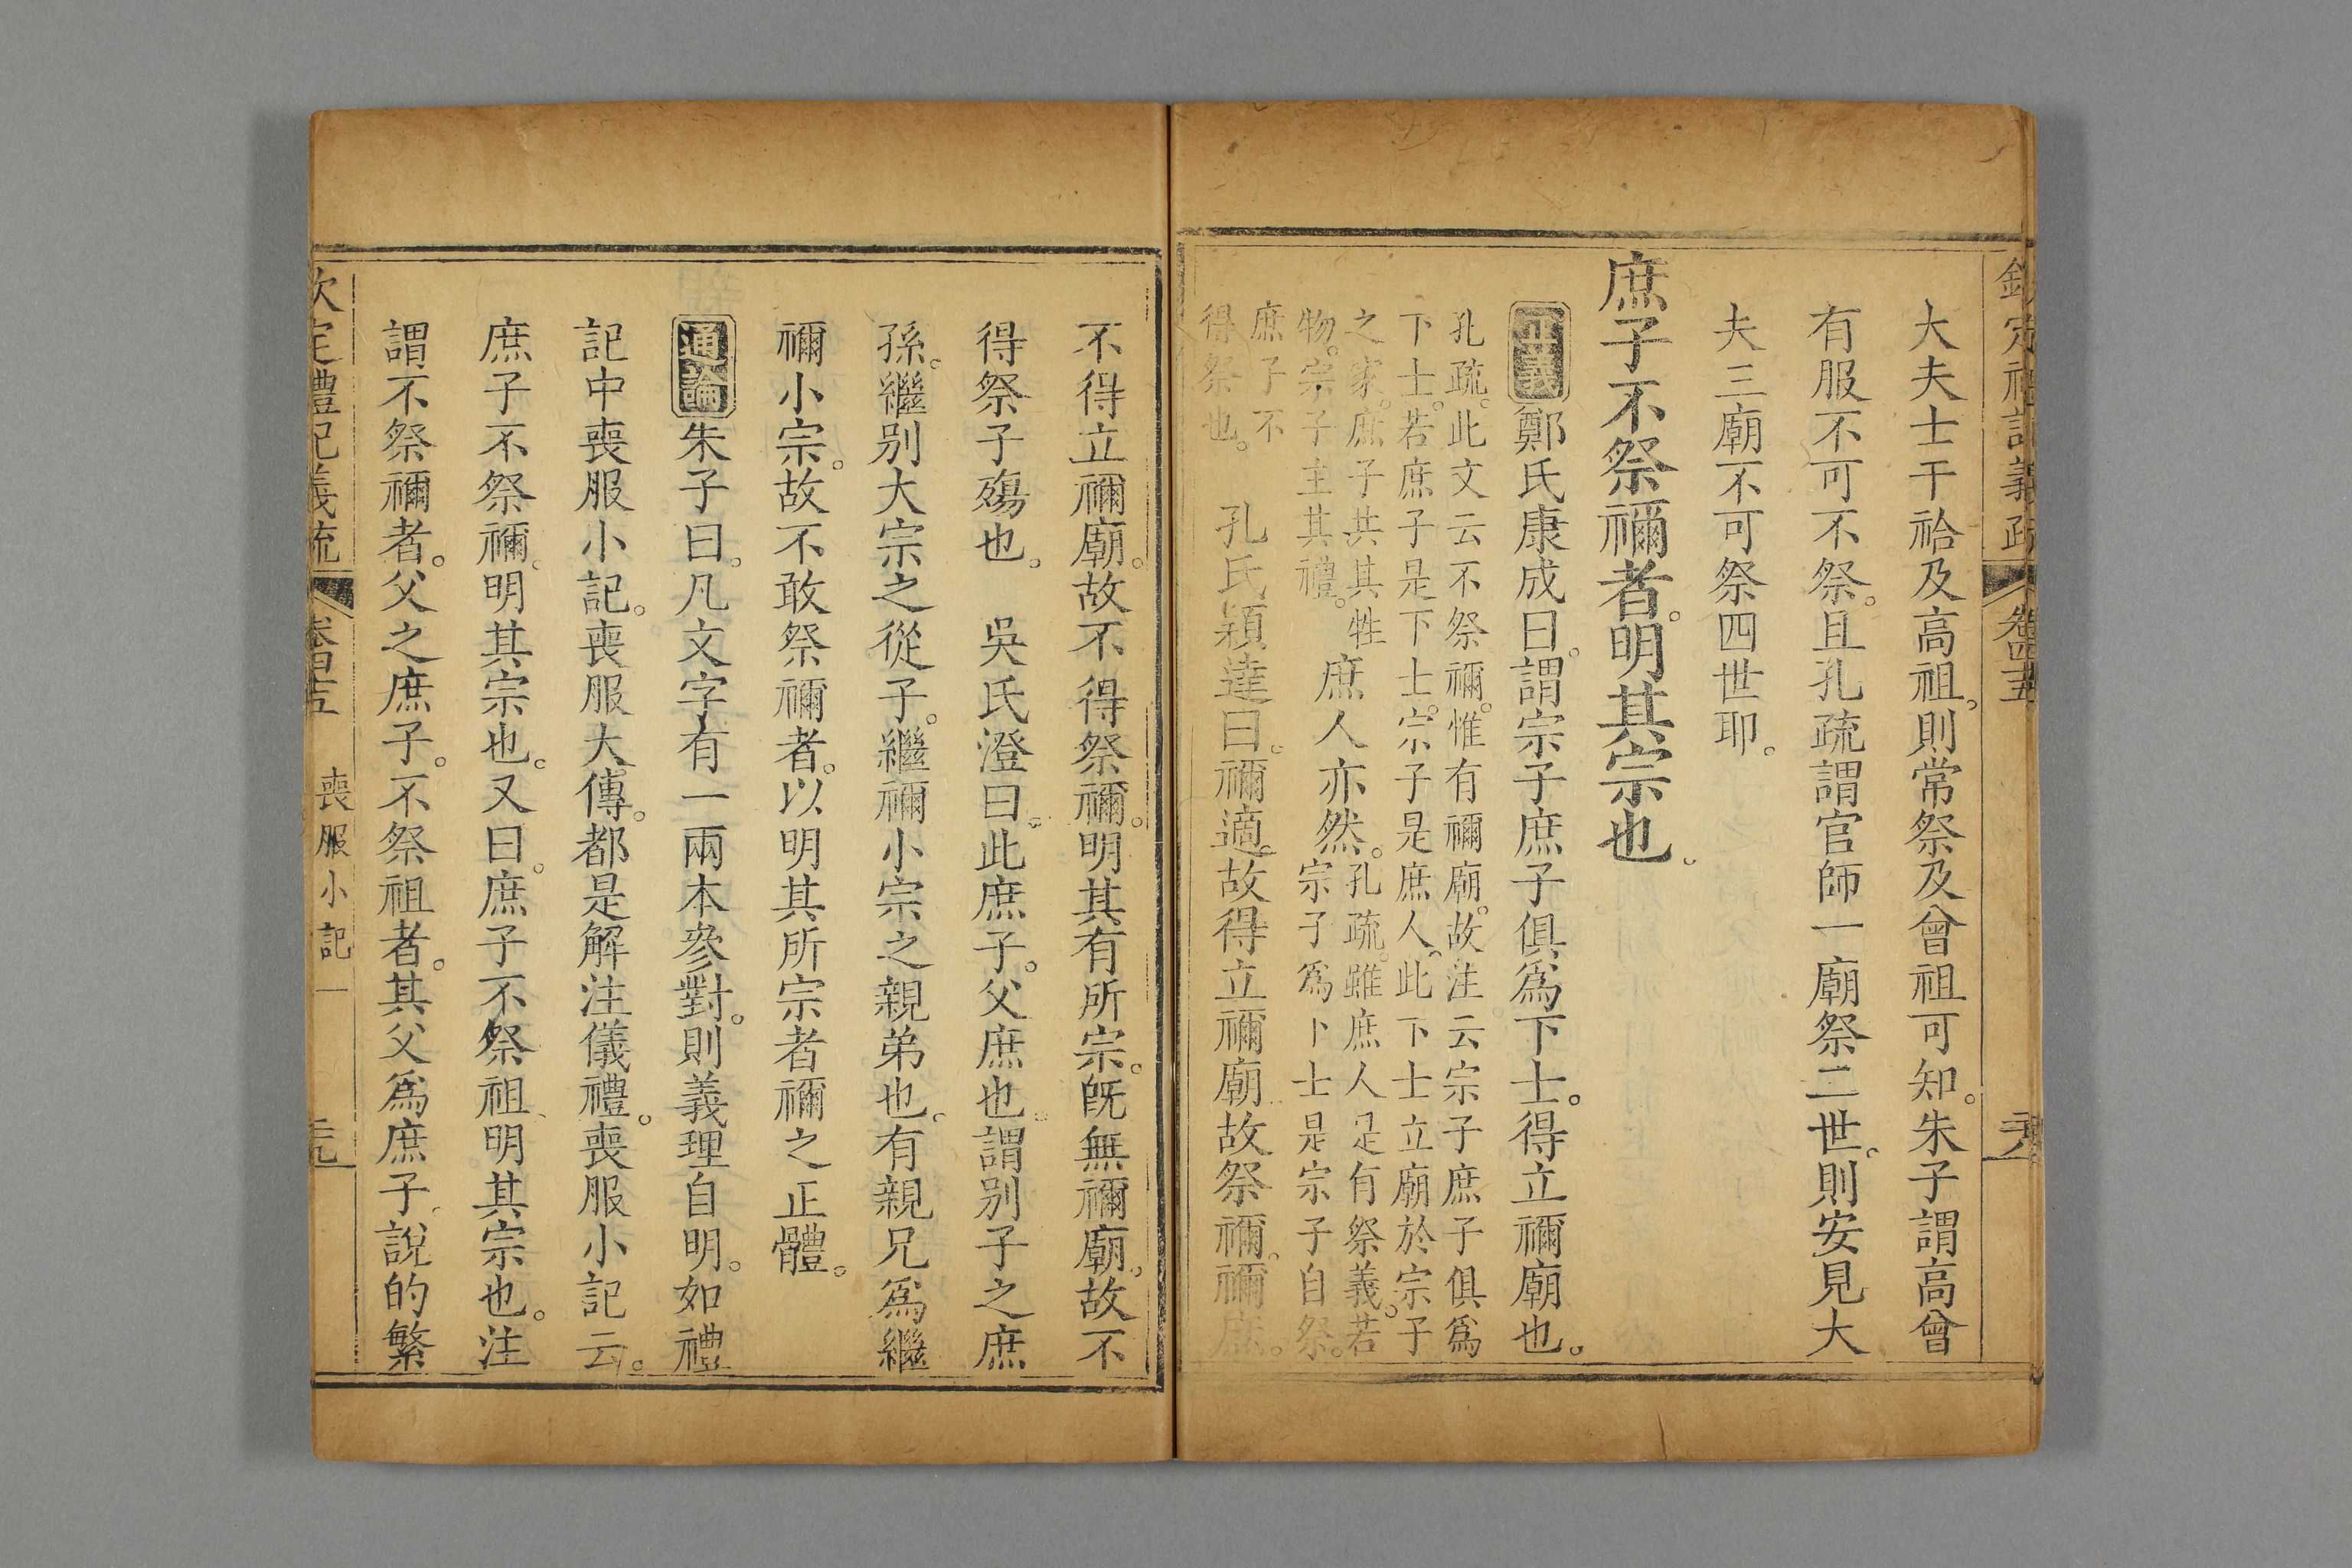 欽定禮記義疏 卷四十五
大夫士干祫及高祖。則常祭及曾祖可知。朱子謂高曾
有服不可不祭。且孔疏謂官師一廟祭二世。則安見大
夫三廟不可祭四世耶。
庶子不祭禰者。明其宗也。
正義 鄭氏康成曰。謂宗子庶子俱爲下士。得立禰廟也。
孔疏。此文云不祭禰。惟有禰廟。故注云宗子庶子俱爲
下士。若庶子是下士。宗子是庶人。此下士立廟於宗子
之家。庶子共其牲
物。宗子主其禮。
庶人亦然。
孔疏。雖庶人足有祭義。若
宗子爲下士是宗子自祭。
庶子不
得祭也。
孔氏穎達曰。禰適。故得立禰廟故祭禰。禰庶。
不得立禰廟。故不得祭禰。明其有所宗。旣無禰廟。故不
得祭子殤也。 吳氏澄曰。此庶子。父庶也。謂別子之庶
孫。繼別大宗之從子。繼禰小宗之親弟也。有親兄爲繼
禰小宗。故不敢祭禰者。以明其所宗者禰之正體。
通論 朱子曰。凡文字有一兩本參對。則義理自明。如禮
記中喪服小記。喪服大傳。都是解注儀禮。喪服小記云。
庶子不祭禰。明其宗也。又曰。庶子不祭祖、明其宗也。注
謂不祭禰者。父之庶子。不祭祖者。其父爲庶子。說的繁
欽定禮記義疏 卷四十五 喪服小記一